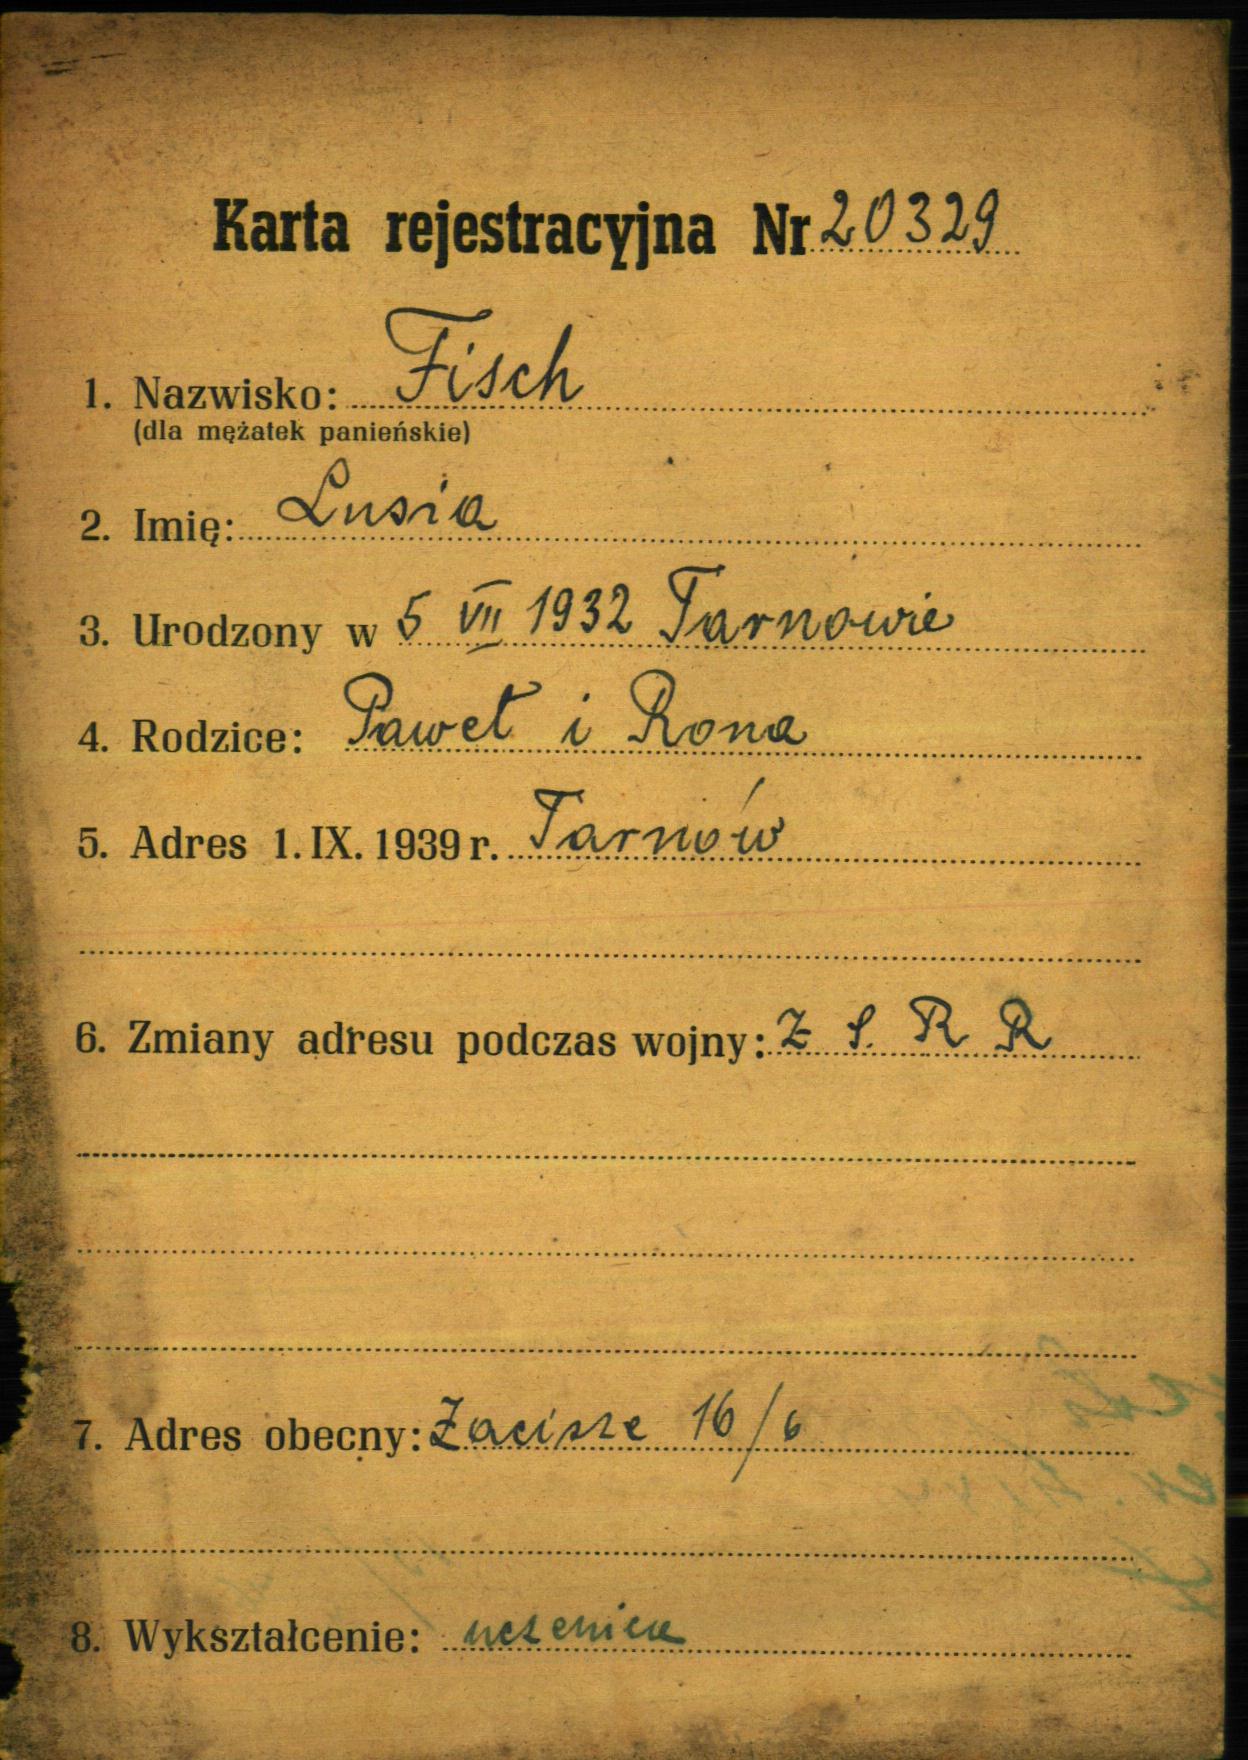 Karta rejestracyjna Nr 20329
1. Nazwisko: Fisch
(dla mężatek panieńskie)
2. Imię: Lusia
3. Urodzony w 5 VII 1932 Tarnowie
4. Rodzice: Paweł i Rona
5. Adres 1. IX. 1939 r. Tarnów
6. Zmiany adresu podczas wojny: Z S. R R
7. Adres obecny: Zacisze 16/6
8. Wykształcenie: uczenica